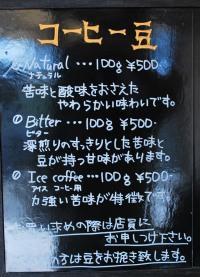 コーヒー豆
Natural … 100g ¥500-
ナチュラル
苦味と酸味をおさえた
やわらかい味わいです。
Bitter … 100g ¥500-
ビター
深煎りのすっきりとした苦味と
豆が持つ甘味があります。
Ice coffee … 100g ¥500-
アイス コーヒー用
力強い苦味が特徴です
お買い求めの際は店員に
お申しつけ下さい。
は豆をお挽き致します。